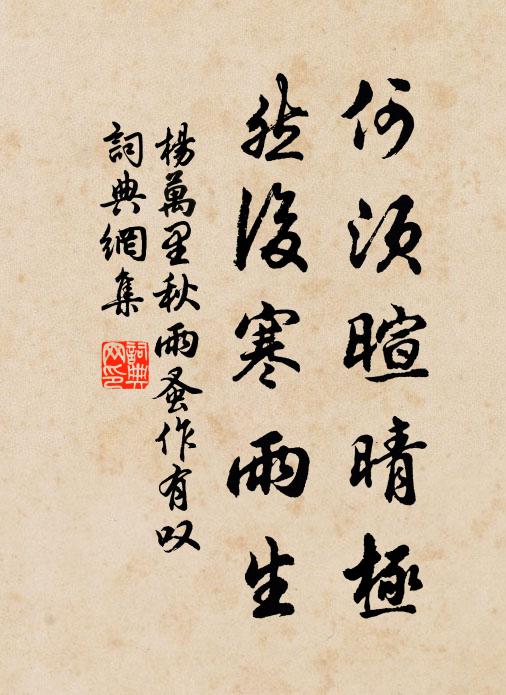 何須暄晴極
然後寒雨生
楊萬里秋雨蚤作有叹
詞典網集
詞典網印